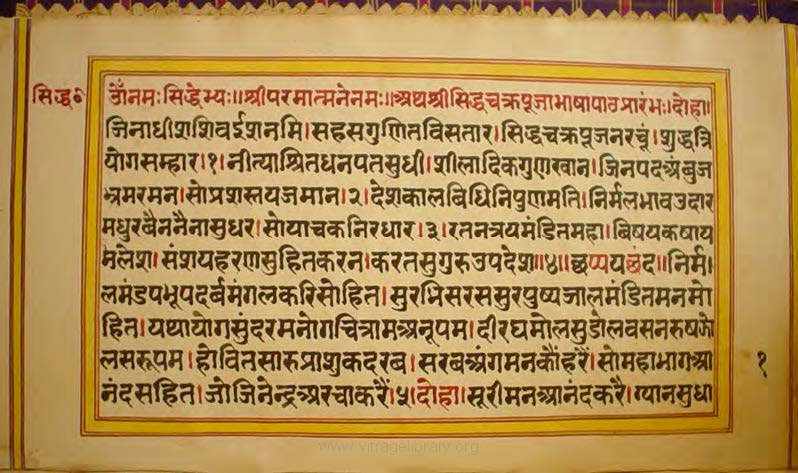 सिद्ध॰
ॐनमःसिद्धेभ्यः॥श्रीपरमात्मनेनमः॥अथश्रीसिद्धचक्रपूजाभाषापाठप्रारंभः।दोहा।
जिनाधीशशिवईशनमि।सहसगुणितविसतार।सिद्धचक्रपूजनरचूं।शुद्धत्रि
योगसम्हार।१।नीत्याश्रितधनपतसुधी।शीलादिकगुणखान।जिनपदअंबुज
भ्रमरमन।सोप्रशस्तयजमान।२।देशकालबिधिनिपुणमति।निर्मलभावउदार
मधुरबैननैनासुधर।सोयाचकनिरधार।३।रतनत्रयमंडितमहा।बिषयकषाय
मलेश।संशयहरणसुहितकरन।करतसुगुरुउपदेश॥४॥छप्पयछंद॥निर्म।
लमंडपभूपदर्बमंगलकरिसोहित।सुरभिसरससुरपुष्पजालमंडितमनमो
हित।यथायोगसुंदरमनोगचित्रामअनूपम।दीरघमोलसुडोलवसन
लसरूपम।होवितसारुप्राशुकदरब।सरबअंगमनकौंहरैं।सोमहाभागआ
नंदसहित।जोजिनेन्द्रअरचाकरैं।५।दोहा।सूरीमनआनंदकरै।ग्यानसुधा
१
www.vitragelibrary.org